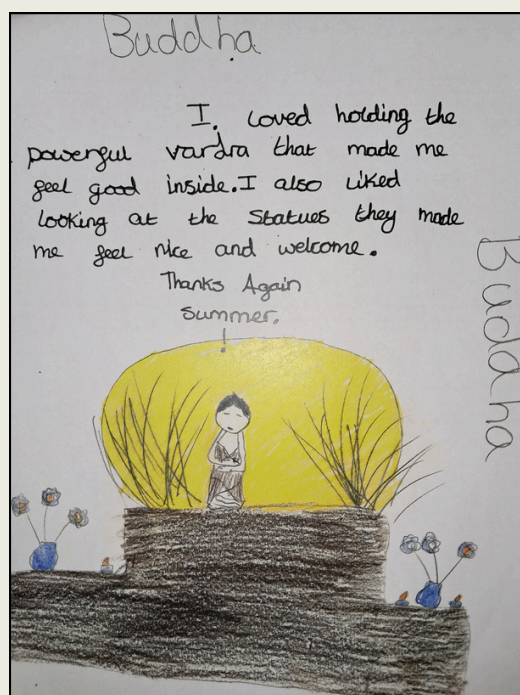 Buddha
I. loved holding the
powerful vardra that made me
feel good inside. I also liked
looking at the statues they made
me feel nice and welcome.
Thanks Again
Summer.
Buddha